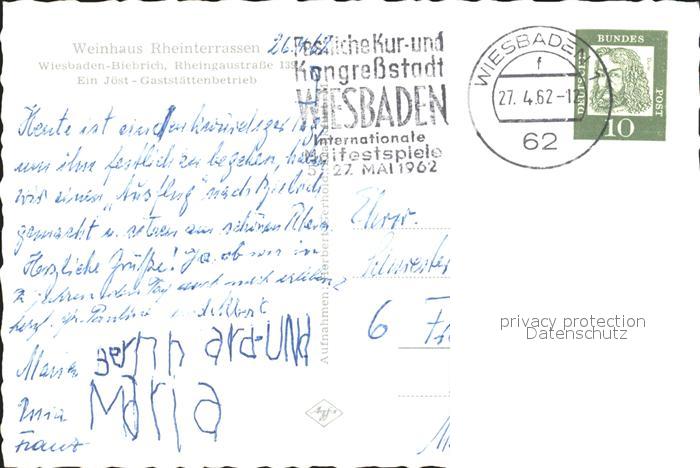 Weinhaus Rheinterrassen
Wiesbaden-Biebrich, Rheingaustraße 139
Ein Jöst - Gaststättenbetrieb
26.4.62
Festliche Kur-und
Kongreßstadt
WIESBADEN
Internationale
Maifestspiele
5.-27. MAI 1962
WIESBADEN 1
f
27. 4.62-1
62
BUNDES
POST
10
Heute ist ein denkwürdiger Tag
um ihn festlich zu begehen, haben
wir einen "Ausflug" nach Biebrich
gemacht u. sitzen am schönen Rhein.
Herzliche Grüße! Ja, ob wir in
Jahren den Tag auch noch erleben?
herzl. Gr. Pauline
Maria
Franz
BerNhArd UNd
MARIA
Aufnahmen:
Ehrw.
Schwester
6 Fr
M
privacy protection
Datenschutz